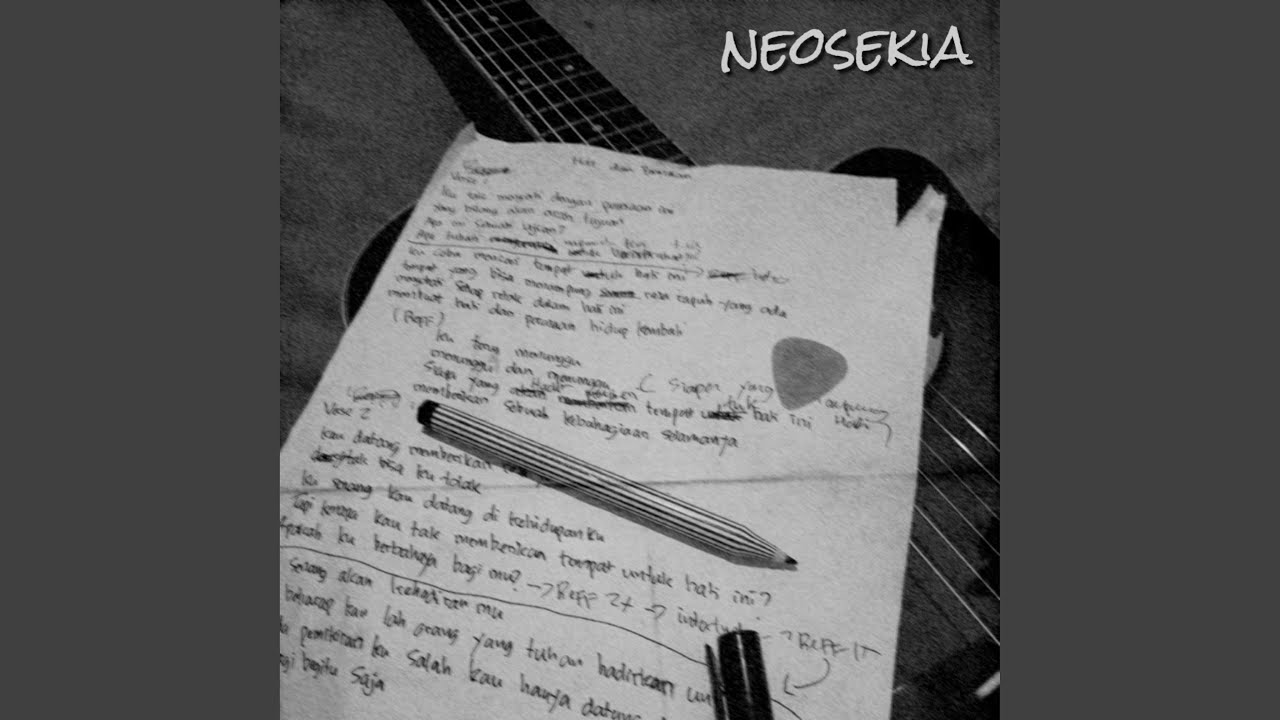 NEOSEKIA
Hati dan Perasaan
Verse 1
ku tak mengerti dengan perasaan ini
yang hilang akan arah tujuan
Apa ini sebuah ujian?
Apa tuhan
ku coba mencari tempat untuk hati ini
tempat yang bisa menampung rasa rapuh yang ada
mengobati setiap retak dalam hati ini
membuat hati dan perasaan hidup kembali
(Reff)
ku terus menunggu
menunggu dan menunggu
Siapa yang tempat untuk hati ini
memberikan sebuah kebahagiaan selamanya
( Siapa yang
Verse 2
kau datang memberikan
tak bisa ku tolak
ku senang kau datang di kehidupanku
Tapi kenapa kau tak memberikan tempat untuk hati ini?
Apakah ku berbahaya bagi mu? → Reff 2x →
Reff 1x
senang akan kehadiran mu
berharap kau lah orang yang tuhan hadirkan
pemikiran ku salah kau hanya datang
pergi begitu saja